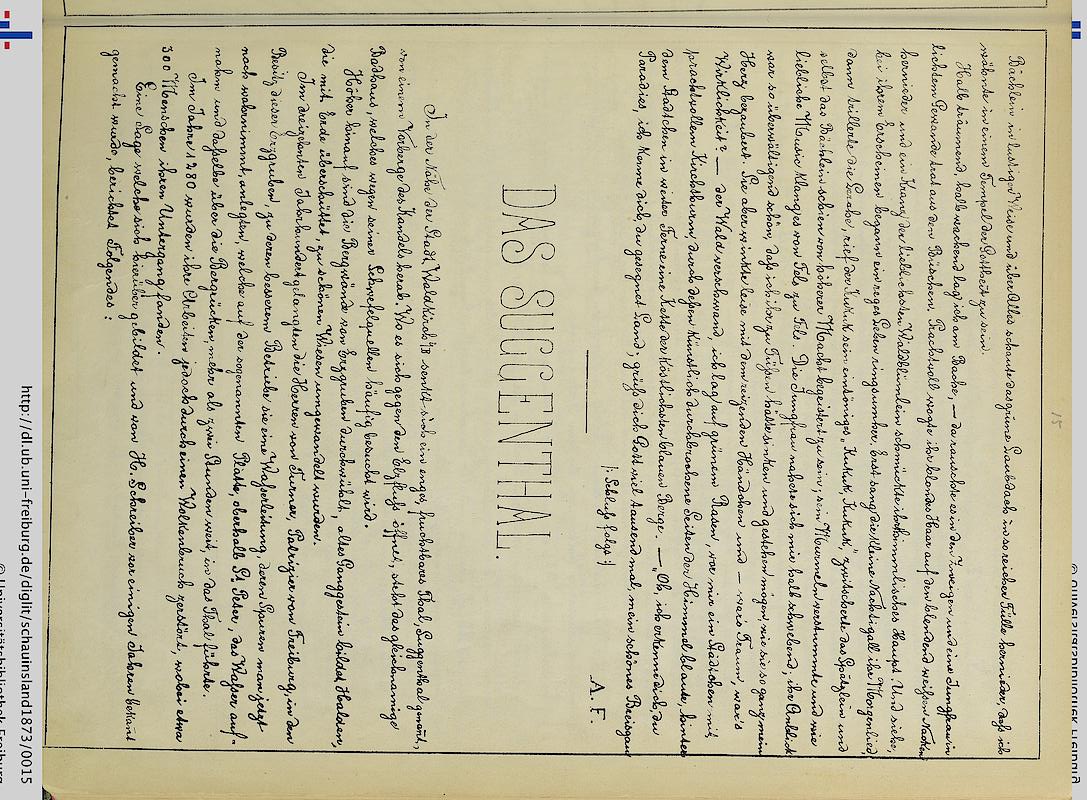 15
Bächlein in lustiger Weise und über Alles schaute das grüne Laubdach in so reicher Fülle hernieder, daß ich
wähnte in einem Tempel der Gottheit zu sein.
Halb träumend, halb wachend lag ich am Bache, — da rauschte es in den Zweigen und eine Jungfrau in
lichtem Gewande trat aus den Büschen, wogte ihr blondes Haar auf den blendend weißen Nacken
hernieder und ein Kranz der lieblichsten Waldblümlein schmückte ihr himmlisches Haupt. Und siehe,
bei ihrem Erscheinen begann ein reges Leben ringsumher. Erst sang die kleine Nachtigall ihr Morgenlied,
dann trillerte die Lerche, rief der Kukuk sein eintöniges „Kukuk, Kukuk", zwitscherte das Spätzlein und
selbst das Bächlein schien von höherer Macht begeistert zu sein; sein Murmeln verstummte und wie
liebliche Music klang es von Fels zu Fels. Die Jungfrau nahete sich mir halb schwebend; ihr Anblick
war so überwältigend schön, daß ich ihr zu Füßen hätte sinken und gestehen mögen, wie sie so ganz mein
Herz bezaubert. Sie aber winkte leise mit dem reizenden Händchen und — war's Traum, war's
Wirklichkeit? — der Wald verschwand, ich lag auf grünem Rasen, vor mir ein Städtchen mit
prachtvollem Kirchthurm, durch deßen künstlich durchbrochene Seiten der Himmel blaute, hinter
dem Städtchen in weiter Ferne eine Kette der köstlichsten blauen Berge. — „Oh, ich erkenne dich du
Paradies, ich kenne dich, du gesegnet Land; grüß dich Gott viel tausend mal, mein schönes Breisgau
/: Schluß folgt :/
A. F.
DAS SUGGENTHAL.
In der Nähe der Stadt Waldkirch senkt sich ein enges, fruchtbares Thal, Suggenthal genannt,
von einem Vorberge des Kandels herab. Wo es sich gegen den Elzfluß öffnet, steht das gleichnamige
Badhaus, welches wegen seiner Schwefelquellen häufig besucht wird.
Höher hinauf sind die Bergwände von Erzgruben durchwühlt, altes Ganggestein bildet Halden,
die mit Erde überschüttet, zu schönen Wiesen umgewandelt wurden.
Im dreizehnten Jahrhundert gelangten die Herren von Turner, Patrizier von Freiburg, in den
Besitz dieser Erzgruben, zu deren besserem Betriebe sie eine Waßerleitung, deren Spuren man jetzt
noch wahrnimmt, anlegten, welche auf der sogenannten Platte, oberhalb St. Peter, das Waßer auf-
nahm und daßelbe über die Bergrücken, mehr als zwei Stunden weit, in das Thal führte.
Im Jahre 1280 wurden ihre Arbeiten jedoch durch einen Wolkenbruch zerstört, wobei etwa
300 Menschen ihren Untergang fanden.
Eine Sage welche sich hierüber gebildet und von H. Schreiber vor einigen Jahren bekannt
gemacht wurde, berichtet Folgendes:
http://dl.ub.uni-freiburg.de/diglit/schauinsland1873/0015
© Universitätsbibliothek Freiburg